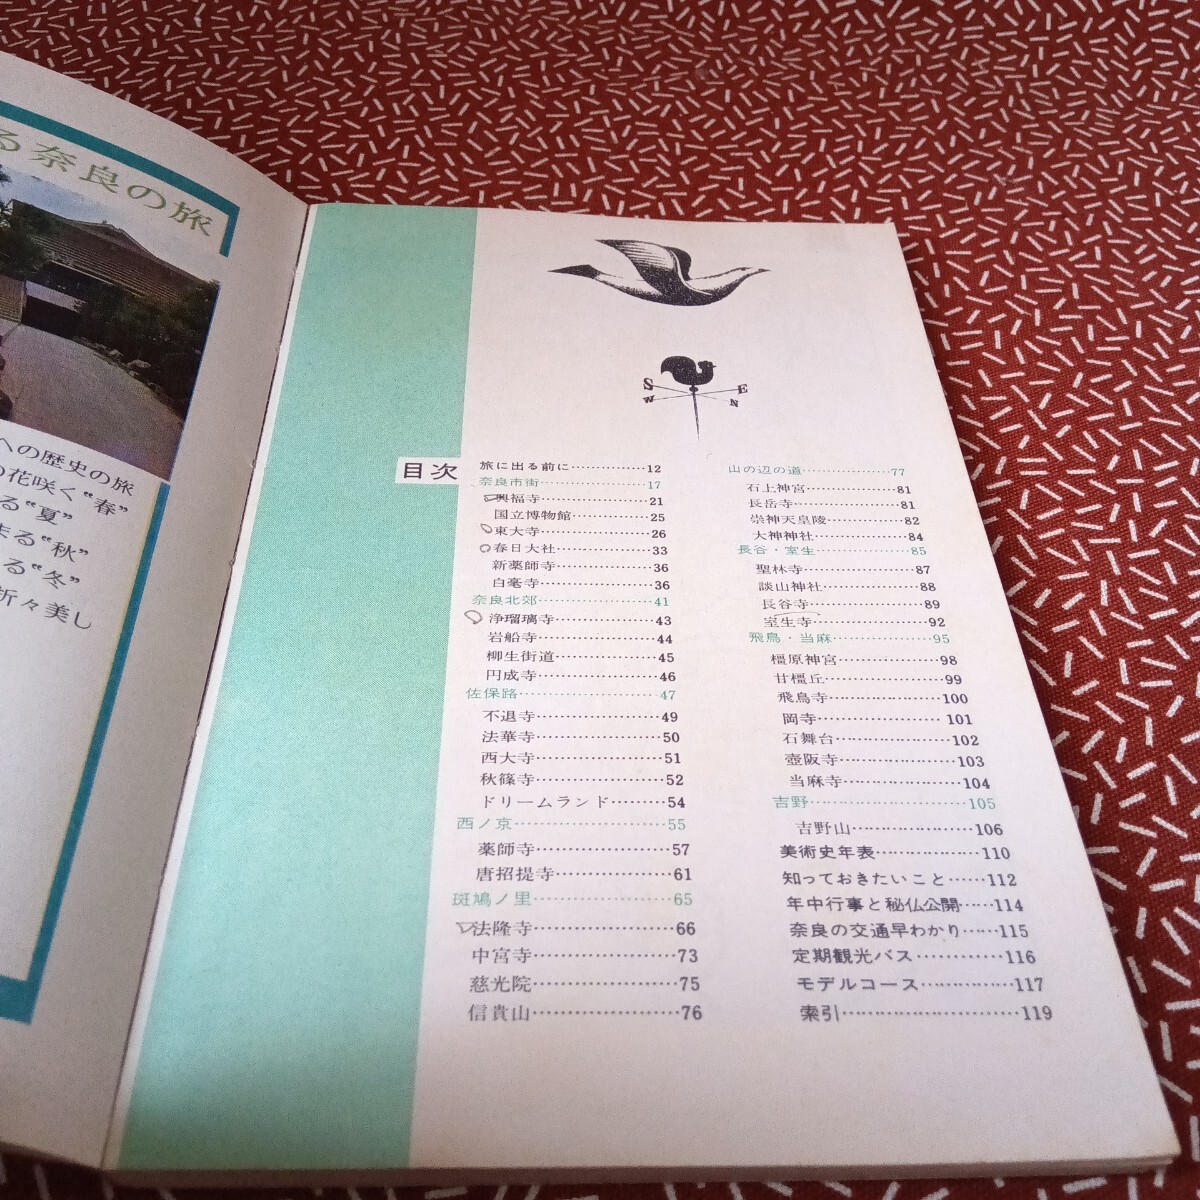 る奈良の旅
への歴史の旅
の花咲く“春”
る“夏”
まる“秋”
る“冬”
折々美し
S E
W N
目次
旅に出る前に……………12
奈良市街……………17
興福寺……………21
国立博物館……………25
東大寺……………26
春日大社……………33
新薬師寺……………36
白毫寺……………36
奈良北郊……………41
浄瑠璃寺……………43
岩船寺……………44
柳生街道……………45
円成寺……………46
佐保路……………47
不退寺……………49
法華寺……………50
西大寺……………51
秋篠寺……………52
ドリームランド………54
西ノ京……………55
薬師寺……………57
唐招提寺……………61
斑鳩ノ里……………65
法隆寺……………66
中宮寺……………73
慈光院……………75
信貴山……………76
山の辺の道……………77
石上神宮……………81
長岳寺……………81
崇神天皇陵……………82
大神神社……………84
長谷・室生……………85
聖林寺……………87
談山神社……………88
長谷寺……………89
室生寺……………92
飛鳥・当麻……………95
橿原神宮……………98
甘橿丘……………99
飛鳥寺……………100
岡寺……………101
石舞台……………102
壺阪寺……………103
当麻寺……………104
吉野……………105
吉野山……………106
美術史年表……………110
知っておきたいこと……112
年中行事と秘仏公開……114
奈良の交通早わかり……115
定期観光バス…………116
モデルコース……………117
索引……………119